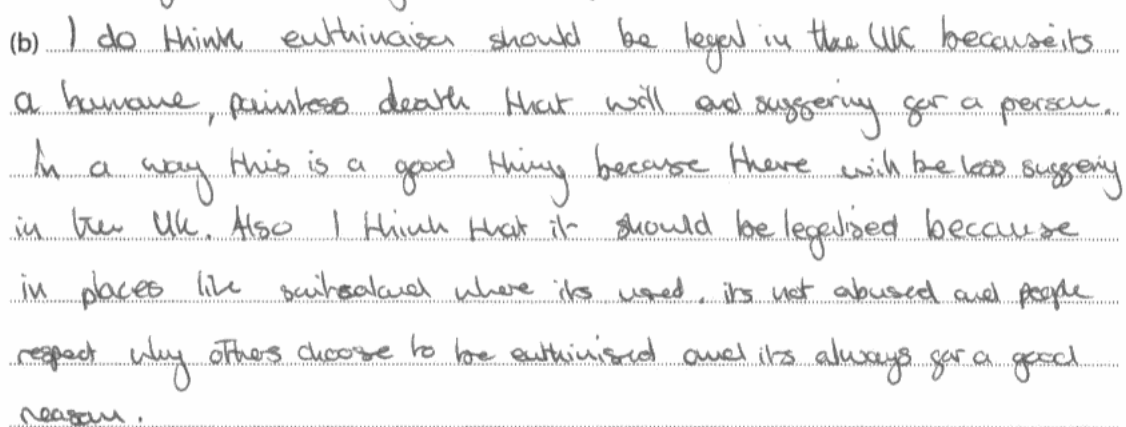 (b) I do think euthinaisa should be legal in the UK because its
a humane, painless death that will end suffering for a person.
In a way this is a good thing because there will be less suffering
in the UK. Also I think that it should be legalised because
in places like switsaland where its used, its not abused and people
respect why others choose to be euthinised and its always for a good
reason.